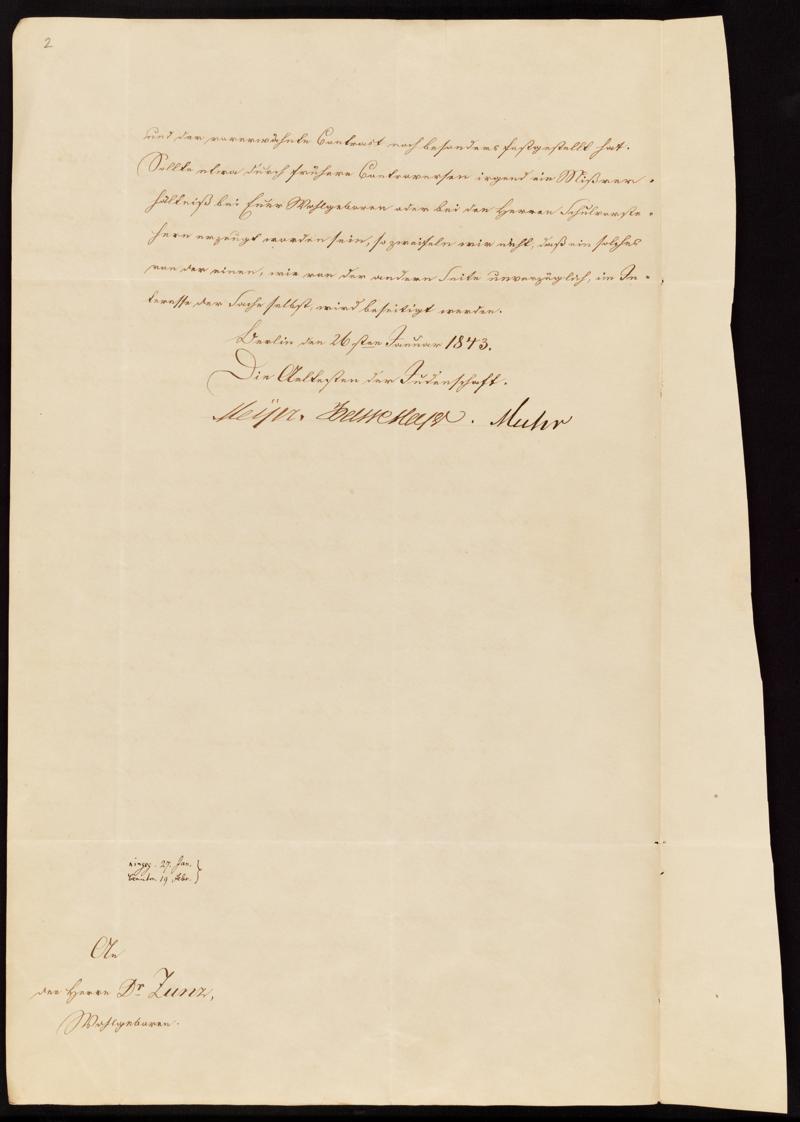 2
und der vorerwähnte Contract noch besonders festgestellt hat.
Sollte etwa durch frühere Controversen irgend ein Mißver-
hältniß bei Euer Wohlgeboren oder bei den Herren Schulvorste-
hern erzeugt worden sein, so zweifeln wir nicht, daß ein solches
von der einen, wie von der andern Seite unverzüglich, im In-
teresse der Sache selbst, wird beseitigt werden.
Berlin den 26sten Januar 1843.
Die Aeltesten der Judenschaft.
Muhr
eingeg. 27. Jan.
19 Febr.
An
den Herrn Dr Zunz,
Wohlgeboren.